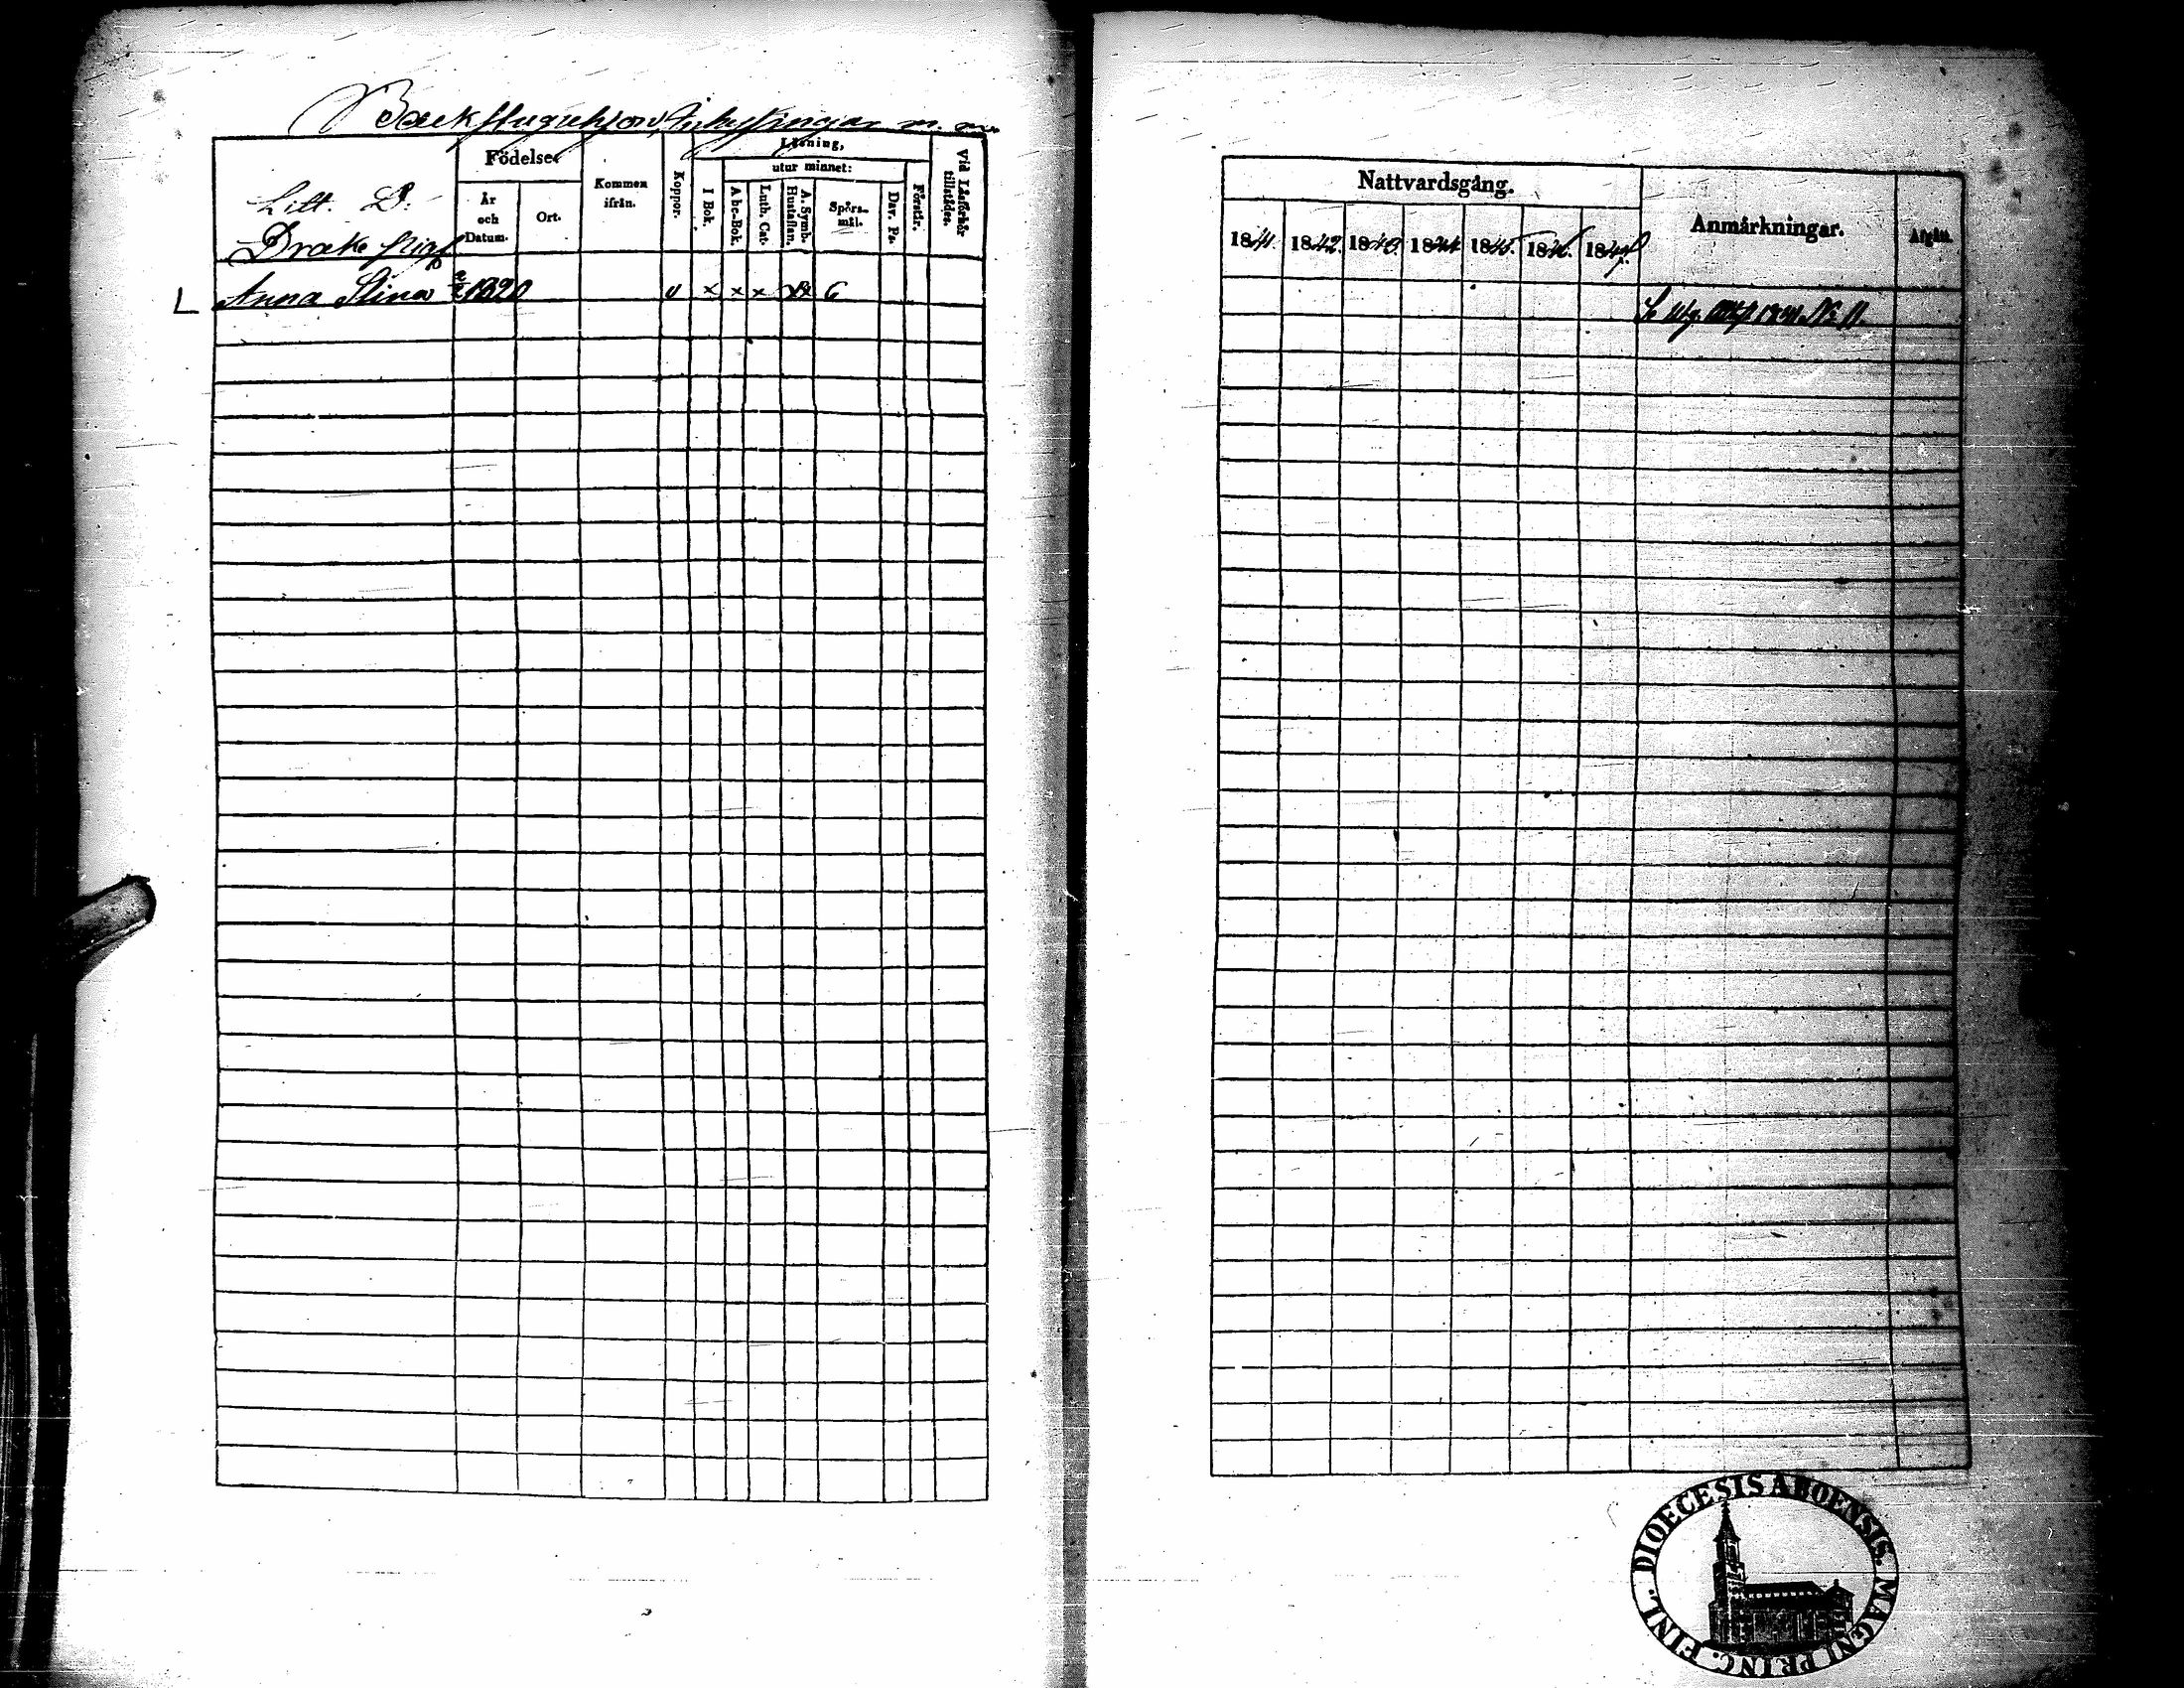 Backstuguhjon, Inhysingar m. m.
Litt. D.
Drake pig
Födelse
År och Datum.
Ort.
Kommen ifrån.
Koppor.
Läsning,
I Bok.
utur minnet:
Abc-Bok.
Luth. Cat.
A. Symb. Hustaflan.
Spörs-mål.
Dav. Ps.
Förstår.
Vid Läsförhör tillstädes.
L Anna Stina 1820 v x x x x 6
Nattvardsgång.
1841. 1842. 1843. 1844 1845. 1846. 1847
Anmärkningar.
Afgått.
DIOECESIS ABOENSIS. MAGNI PRINC. FINL.